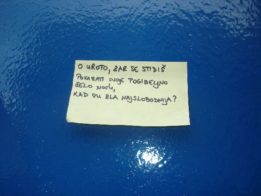 O UROTO, ZAR SE STIDIŠ
POKAZATI SVOJE POGIBELJNO
ČELO NOĆU,
KAD SU ZLA NAJSLOBODNIJA?